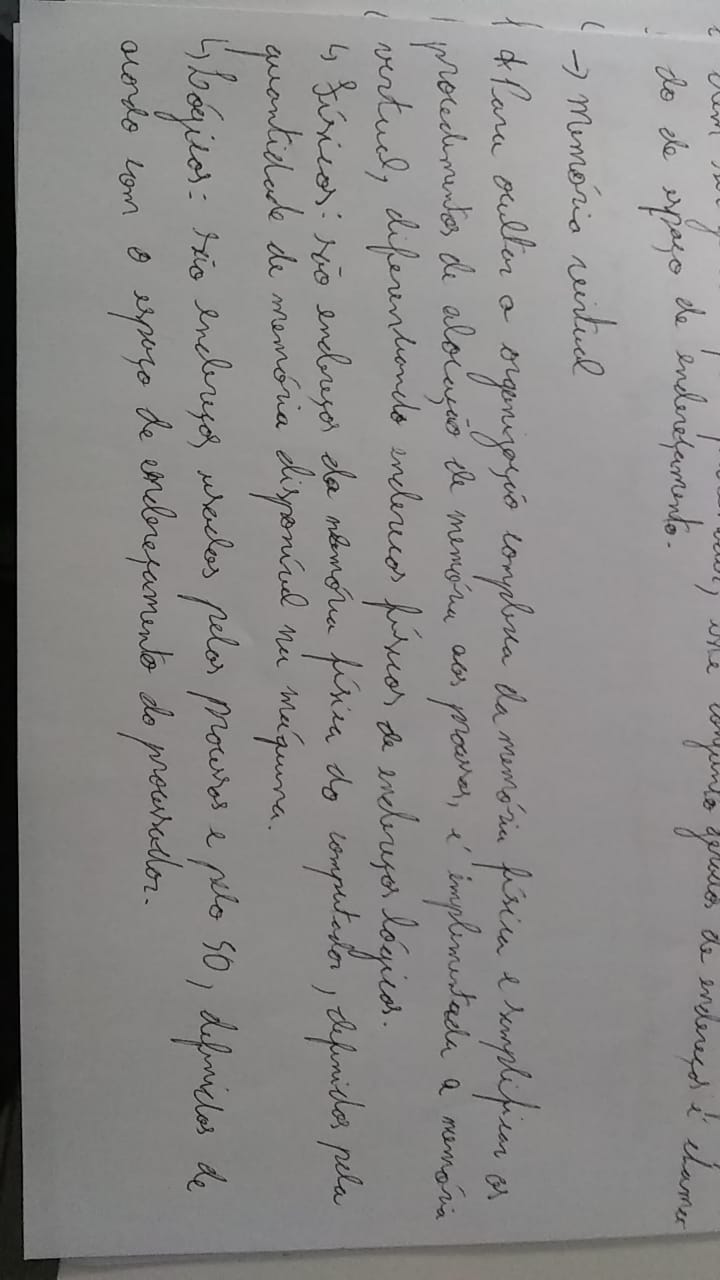 este conjunto gerados de endereços é chama
do de espaço de endereçamento.
→ Memória virtual
* Para ocultar a organização complexa da memória física e simplificar os
procedimentos de alocação de memória aos processos, é implementada a memória
virtual, diferenciando enderecos físicos de endereços lógicos.
↳ Físicos: são endereços da memória física do computador, definidos pela
quantidade de memória disponível na máquina.
↳ Lógicos: são endereços usados pelos processos e pelo SO, definidos de
acordo com o espaço de endereçamento do processador.